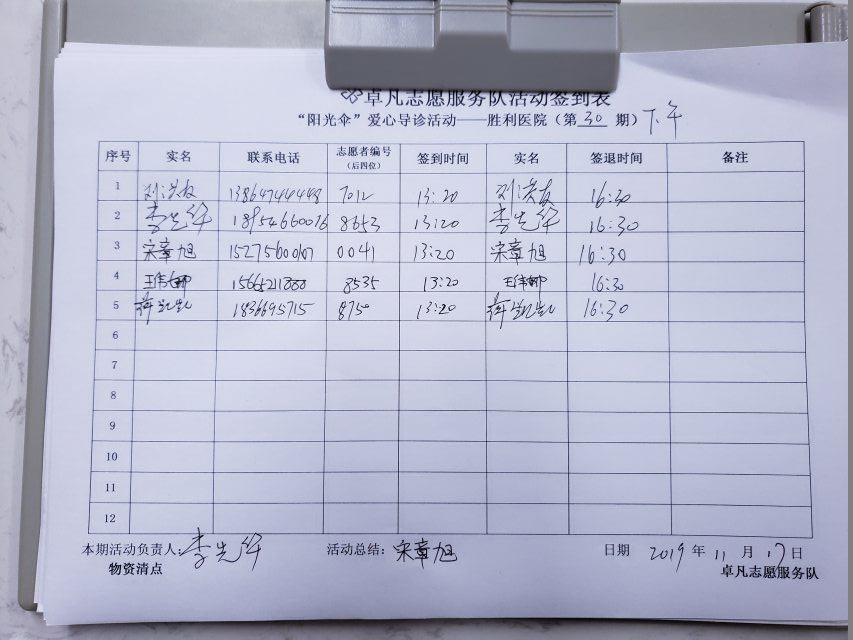 卓凡志愿服务队活动签到表
“阳光伞”爱心导诊活动——胜利医院（第 30 期）下午
序号 实名 联系电话 志愿者编号（后四位） 签到时间 实名 签退时间 备注
1 13864744448 7012 13:20 16:30
2 李先华 18954660016 8653 13:20 李先华 16:30
3 宋章旭 0041 13:20 宋章旭 16:30
4 王伟娜 8535 13:20 王伟娜 16:30
5 蒋凯凯 8750 13:20 蒋凯凯 16:30
6
7
8
9
10
11
12
本期活动负责人：李先华 活动总结：宋章旭 日期 2019 年 11 月 17 日
物资清点 卓凡志愿服务队